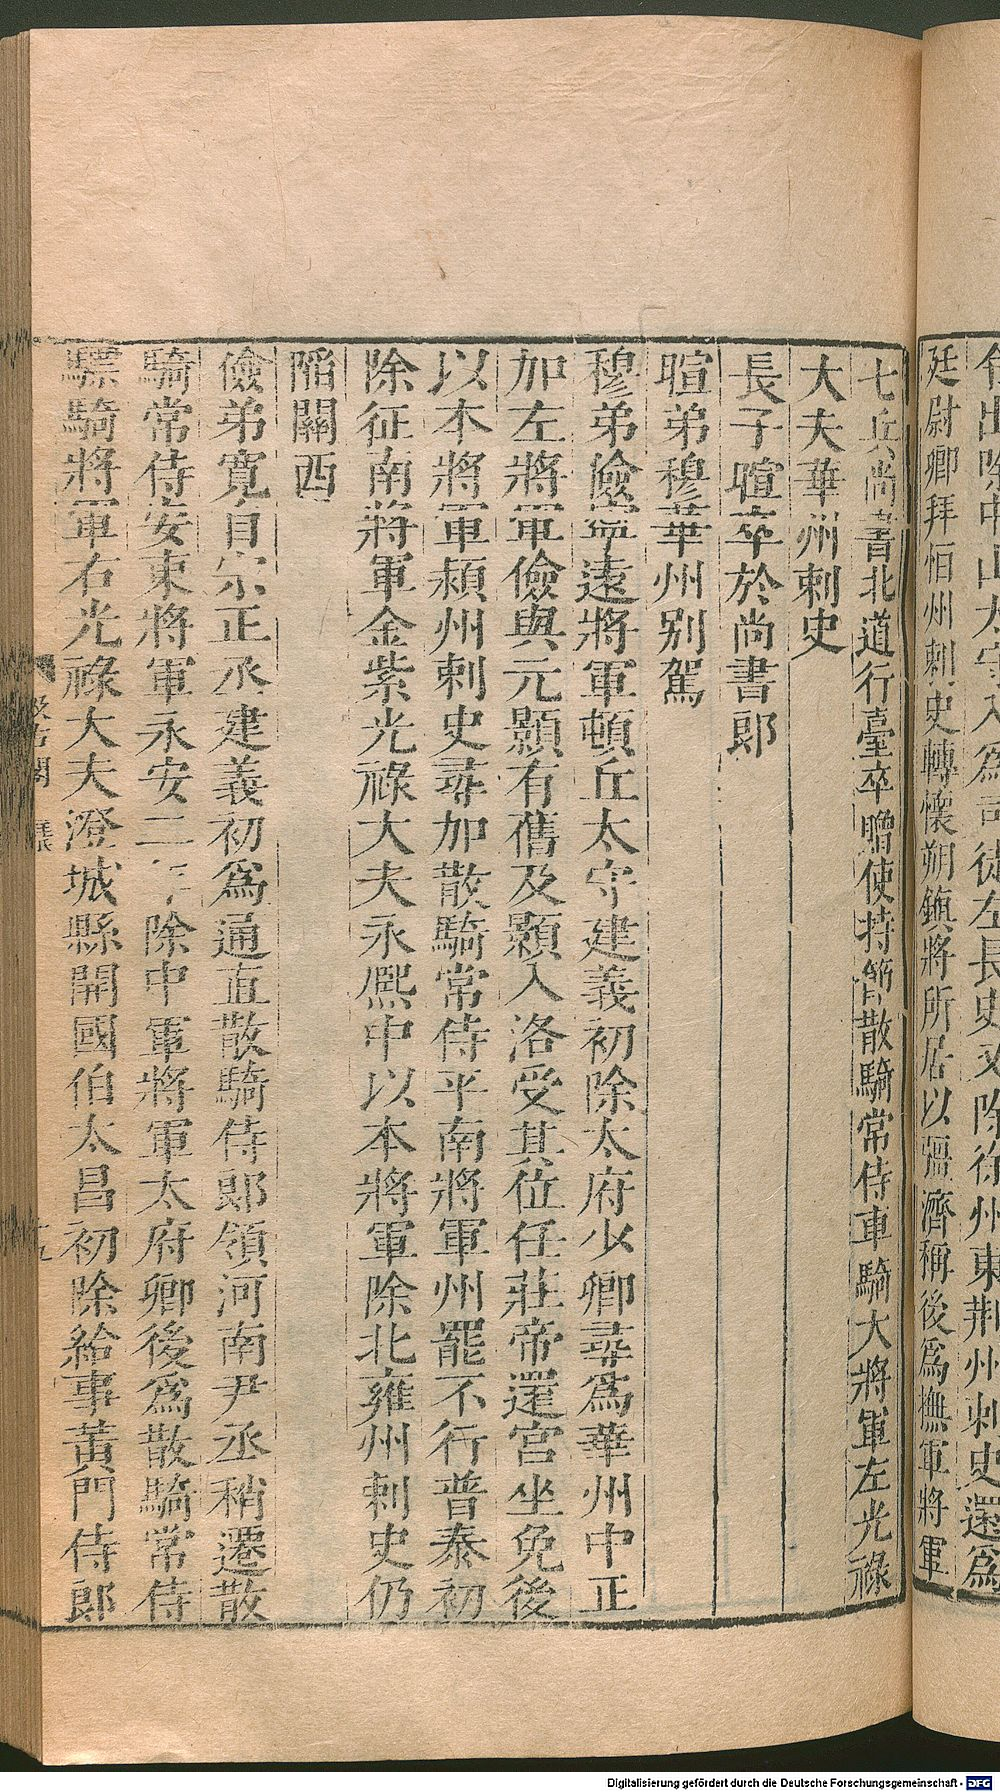 出除中山太守入爲司徒左長史又除徐州東荆州刺史還爲
廷尉卿拜恒州刺史轉懷朔鎭將所居以彊濟稱後爲撫軍將軍
七兵尚書北道行臺卒贈使持節散騎常侍車騎大將軍左光祿
大夫華州刺史
長子暄卒於尚書郎
暄弟穆華州别駕
穆弟儉寧遠將軍頓丘太守建義初除太府少卿尋爲華州中正
加左將軍儉與元顥有舊及顥入洛受其位任莊帝還宫坐免後
以本將軍潁州刺史尋加散騎常侍平南將軍州罷不行普泰初
除征南將軍金紫光祿大夫永熈中以本將軍除北雍州刺史仍
陷關西
儉弟寛自宗正丞建義初爲通直散騎侍郎領河南尹丞稍遷散
騎常侍安東將軍永安二年除中軍將軍太府卿後爲散騎常侍
驃騎將軍右光祿大夫澄城縣開國伯太昌初除給事黃門侍郎
汲古閣
Digitalisierung gefördert durch die Deutsche Forschungsgemeinschaft - DFG